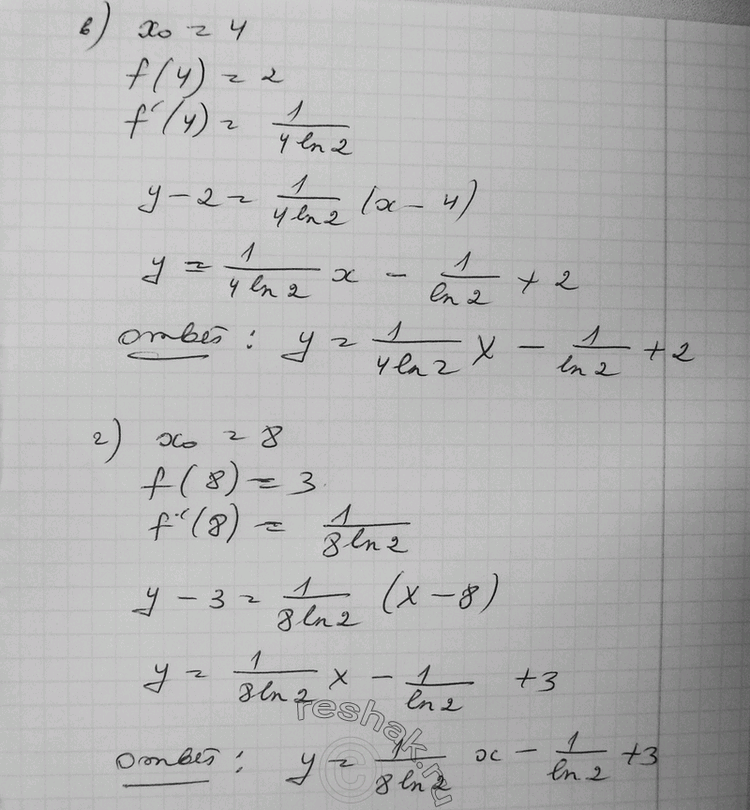 в) x₀ = 4
f(4) = 2
f'(4) = 1/(4 ln 2)
y - 2 = 1/(4 ln 2) (x - 4)
y = 1/(4 ln 2) x - 1/(ln 2) + 2
Ответ: y = 1/(4 ln 2) x - 1/(ln 2) + 2
г) x₀ = 8
f(8) = 3
f'(8) = 1/(8 ln 2)
y - 3 = 1/(8 ln 2) (x - 8)
y = 1/(8 ln 2) x - 1/(ln 2) + 3
Ответ: y = 1/(8 ln 2) x - 1/(ln 2) + 3
reshak.ru
©